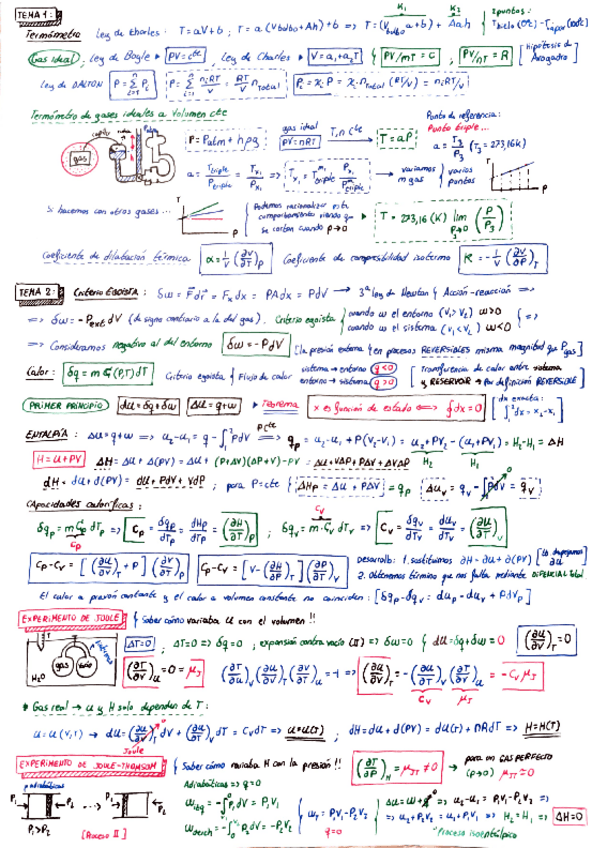 TEMA 1:
Termómetro Ley de Charles: T = aV + b ; T = a(V_bulbo + Ah) + b => T = (V_bulbo a + b) + Aah
K₁ K₂
2 puntos:
Gas ideal, Ley de Boyle PV = cte , Ley de Charles V = a₁ + a₂T PV/mT = C , PV/nT = R [Hipótesis de Avogadro]
Ley de DALTON P = Σ Pᵢ P = Σ nᵢRT/V = RT/V n_total
Termómetro de gases ideales a volumen cte
gas
P = Patm + hρg gas ideal PV = nRT T, n cte T = aP
Punto de referencia:
Punto triple...
a = T₃/P₃ (T₃ = 273,16K)
variamos m gas varios puntos
Si hacemos con otros gases...
se cortan cuando p→0
T = 273,16 (K) lim P₃→0 (P/P₃)
Coeficiente de dilatación térmica α = 1/V (∂V/∂T)_P Coeficiente de compresibilidad isotermo K = -1/V (∂V/∂P)_T
TEMA 2: Criterio EGOISTA: δω = F dr = Fₓ dx = PA dx = P dV → 3ª ley de Newton { Acción-reacción =>
=> δω = -P_ext dV (de signo contrario a la del gas). Criterio egoista { cuando ω el entorno (V₁>V₂) ω>0
cuando ω el sistema (V₁<V₂) ω<0 } =>
=> Consideramos negativo al del entorno δω = -PdV [la presión externa en procesos REVERSIBLES misma magnitud que P gas]
Calor: δq = m C(P,T) dT Criterio egoista { Flujo de calor sistema → entorno q<0
entorno → sistema q>0
[Transferencia de calor entre sistema y RESERVOIR → Por definición REVERSIBLE]
PRIMER PRINCIPIO dU = δq + δω ΔU = q + ω Teorema x es función de estado <=> ∮dx = 0 [dx exacta: ∫₁² dx = x₂ - x₁]
ENTALPÍA: ΔU = q + ω => U₂ - U₁ = q - ∫₁² PdV => q_P = U₂ - U₁ + P(V₂ - V₁) = U₂ + PV₂ - (U₁ + PV₁) = H₂ - H₁ = ΔH
H = U + PV ΔH = ΔU + Δ(PV) = ΔU + (P+ΔP)(ΔV+V) - PV = ΔU + VΔP + PΔV + ΔVΔP
dH = dU + d(PV) = dU + PdV + VdP ; para P = cte { ΔH_P = ΔU + PΔV = q_P
CApacidades caloríficas:
δq_P = m C_P dT_P => C_P = δq_P/dT_P = dH_P/dT_P = (∂H/∂T)_P ; δq_V = m C_V dT_V => C_V = δq_V/dT_V = dU_V/dT_V = (∂U/∂T)_V
C_P - C_V = [(∂U/∂V)_T + P] (∂V/∂T)_P C_P - C_V = [V - (∂H/∂P)_T] (∂P/∂T)_V
Desarrollo: 1. Sustituimos ∂H = ∂U + ∂(PV)
2. Obtenemos término que nos falta mediante DIFERENCIAL total
El calor a presión constante y el calor a volumen constante no coinciden: [δq_P - δq_V = dU_P - dU_V + PdV_P]
EXPERIMENTO DE JOULE { Saber cómo variaba U con el volumen!!
T gas vacío H₂O
ΔT=0 ; ΔT=0 => δq=0 ; expansión contra vacío => δω=0 { dU = δq + δω = 0 (∂U/∂V)_T = 0
(∂T/∂V)_U = 0 = μ_J (∂T/∂U)_V (∂U/∂V)_T (∂V/∂T)_U = -1 => (∂U/∂V)_T = -(∂U/∂T)_V (∂T/∂V)_U = -C_V μ_J
C_V μ_J
Gas real → U y H solo dependen de T:
U = U(V,T) → dU = (∂U/∂V)_T dV + (∂U/∂T)_V dT = C_V dT => U = U(T) ; dH = dU + d(PV) = dU(T) + nRdT => H = H(T)
Joule
EXPERIMENTO DE JOULE-THOMSOM { Saber cómo variaba H con la presión!! (∂T/∂P)_H = μ_JT ≠ 0 → para un GAS PERFECTO (P→0) μ_JT = 0
adiabáticas
P₁ P₂ ... P₁ P₂
P₁>P₂
[Proceso II]
Adiabáticos => q=0
ω_izq = -∫ P₁dV = P₁V₁
ω_derch = -∫ P₂dV = -P₂V₂
ω_T = P₁V₁ - P₂V₂
q=0
ΔU = ω + q => U₂ - U₁ = P₁V₁ - P₂V₂ =>
=> U₂ + P₂V₂ = U₁ + P₁V₁ => H₂ = H₁ => ΔH=0
Proceso isoentálpico